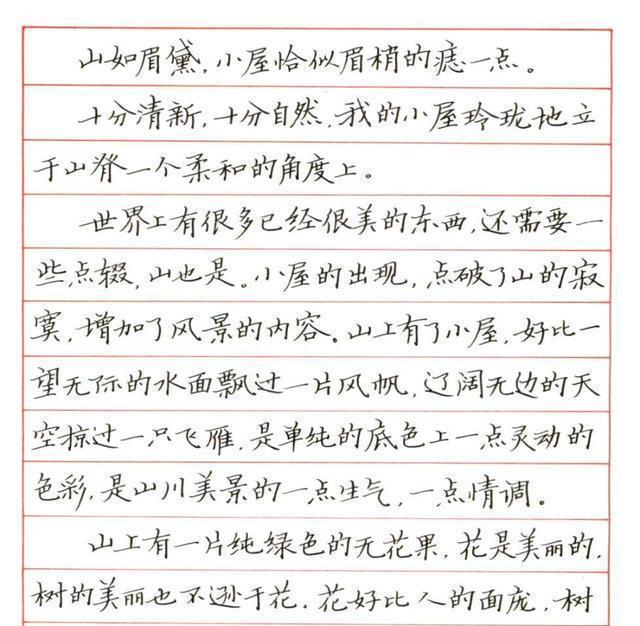 山如眉黛,小屋恰似眉梢的痣一点。
十分清新,十分自然,我的小屋玲珑地立
于山脊一个柔和的角度上。
世界上有很多已经很美的东西,还需要一
些点缀,山也是。小屋的出现,点破了山的寂
寞,增加了风景的内容。山上有了小屋,好比一
望无际的水面飘过一片风帆,辽阔无边的天
空掠过一只飞雁,是单纯的底色上一点灵动的
色彩,是山川美景的一点生气,一点情调。
山上有一片纯绿色的无花果,花是美丽的,
树的美丽也不逊于花。花好比人的面庞,树